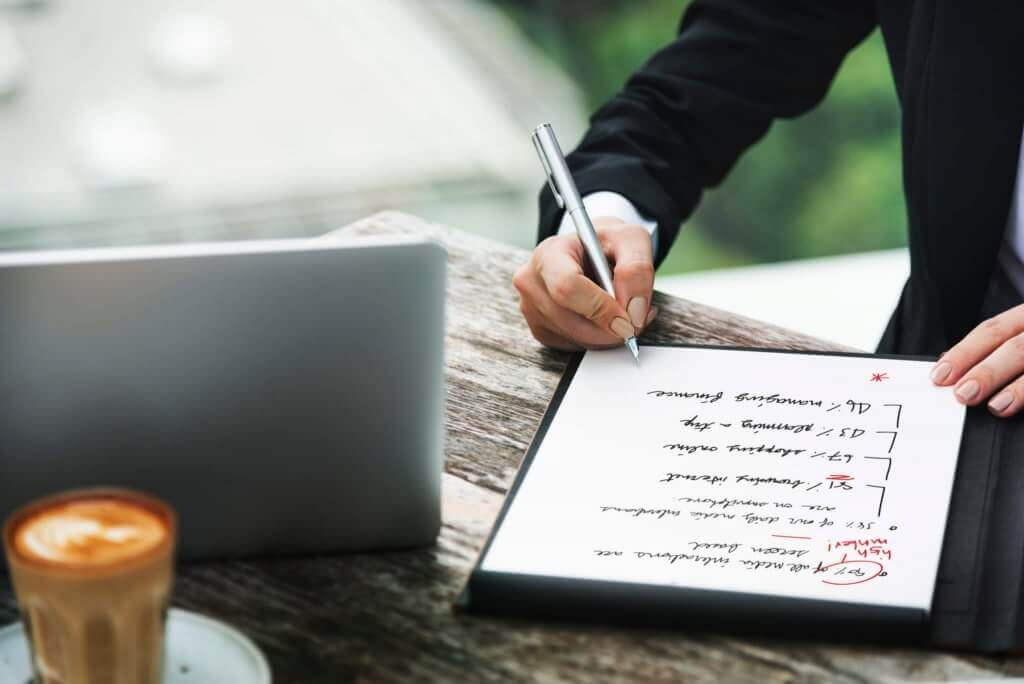 • 90% of all media interactions are
screen based
high
number!
• 38% of our daily media interactions
are on smartphone.
81% browsing internet
67% shopping online
43% planning a trip
46% managing finance
*